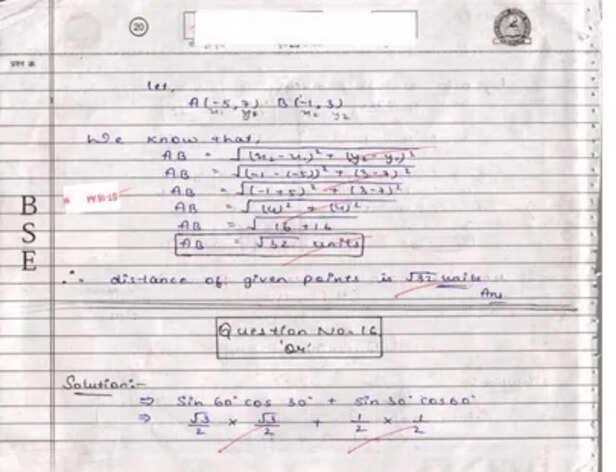 20
प्रश्न क्र.
Let,
A(-5, 7) B(-1, 3)
x₁ y₁ x₂ y₂
We know that,
AB = √(x₂ - x₁)² + (y₂ - y₁)²
AB = √(-1 - (-5))² + (3 - 7)²
AB = √(-1 + 5)² + (3 - 7)²
AB = √(4)² + (4)²
AB = √16 + 16
AB = √32 units
∴ distance of given points is √32 units
Ans
BSE
Question No. 16
'Or'
Solution:-
⇒ Sin 60° cos 30° + sin 30° cos 60°
⇒ √3/2 × √3/2 + 1/2 × 1/2